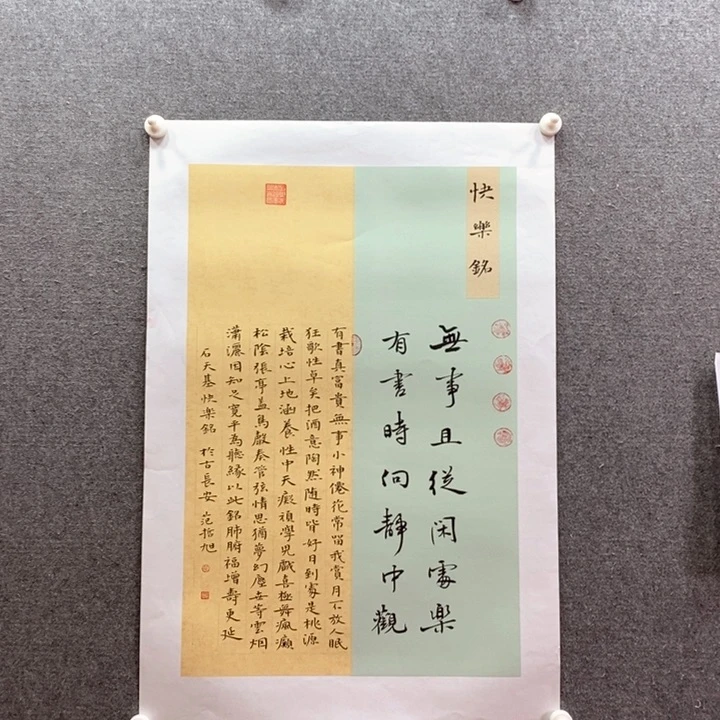 快樂銘
無事且從閑處樂
有書時向靜中觀
有書真富貴無事小神僊花常留我賞月不放人眠
狂歌性卓矣把酒意陶然随時皆好日到處是桃源
栽培心上地涵養性中天癡頑學兒戲喜極舞瘋癲
松陰張亭蓋鳥聲奏管弦情思猶夢幻塵世等雲烟
瀟灑因知足寬平為聽緣以此銘肺腑福增壽更延
石天基快樂銘 於古長安 范哲旭